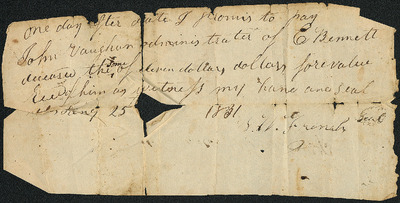 one day after date I promis to pay
John Vaughan adminis trater of E Bennett
deceased the Some of eleven dollars dollars fore value
him as witness my hane and Seal
25 1831
French Seal